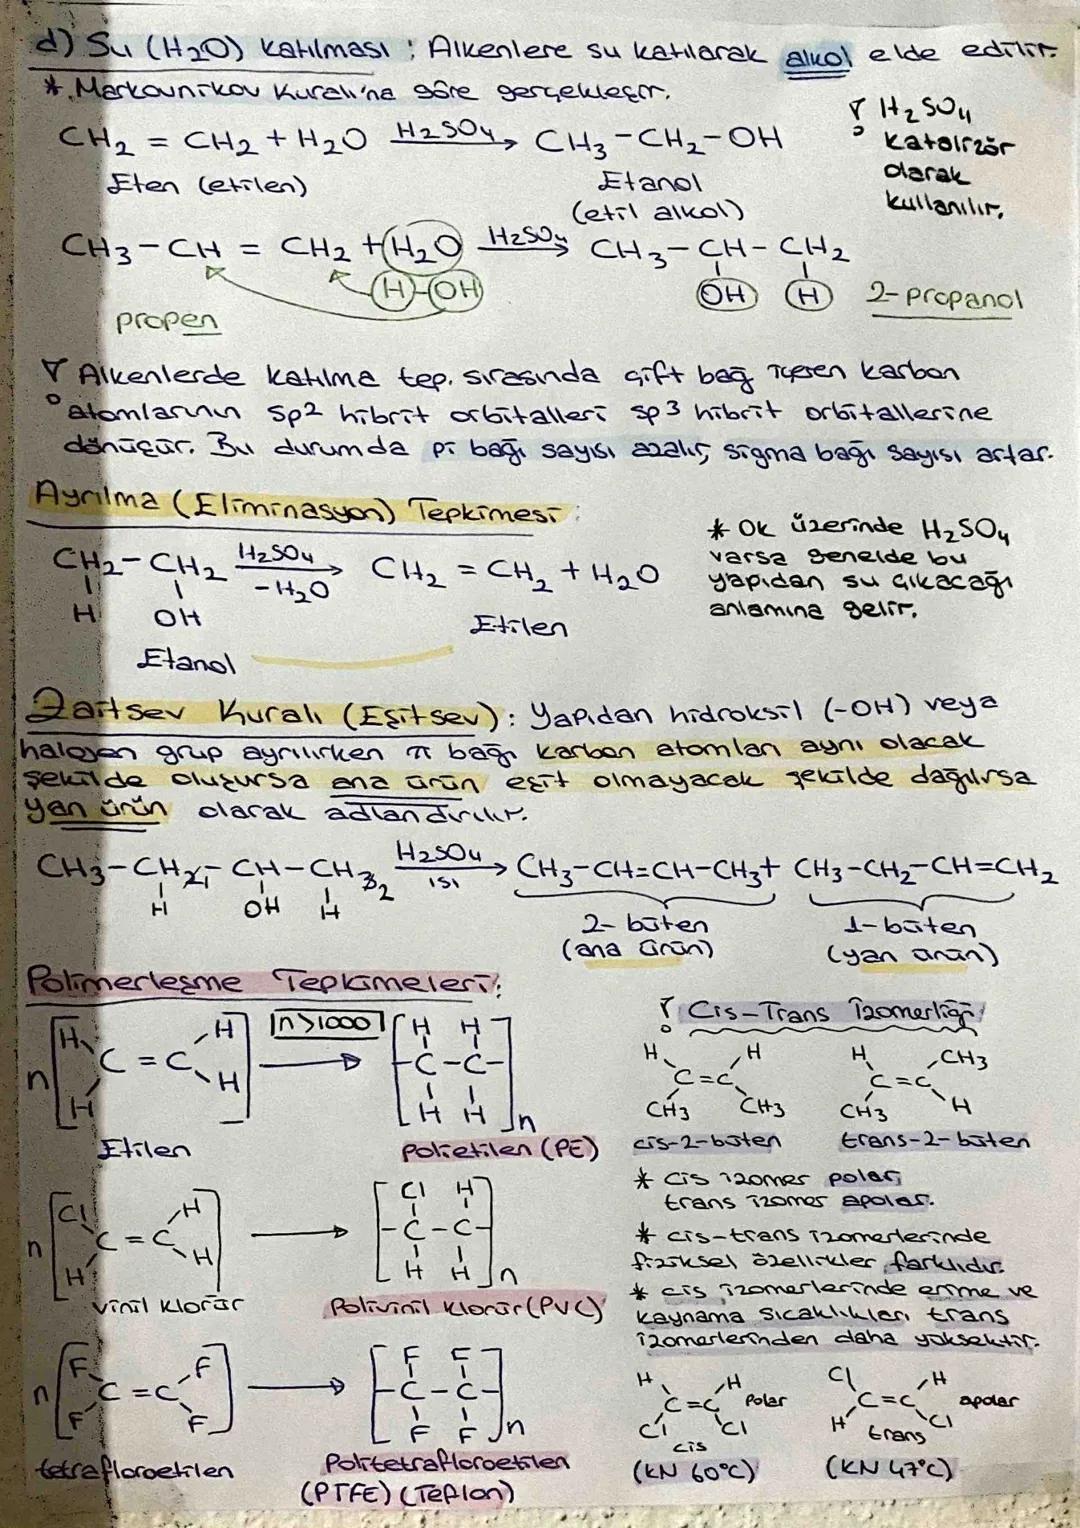 d) Su (H₂O) Katılması : Alkenlere su katılarak alkol elde edilir.
* Markovnikov Kuralı'na göre gerçekleşir.
CH₂ = CH₂ + H₂O H₂SO₄→ CH₃-CH₂-OH
Eten (etilen)
Etanol
(etil alkol)
H₂SO₄
katalizör
olarak
kullanılır.
CH₃-CH = CH₂ + H₂O H₂SO₄→ CH₃-CH-CH₂
H-OH
OH H 2-propanol
propen
Alkenlerde katılma tep. sırasında çift bağ içeren karbon
atomlarının sp2 hibrit orbitalleri sp3 hibrit orbitallerine
dönüşür. Bu durumda pi bağı sayısı azalır, sigma bağı sayısı artar.
Ayrılma (Eliminasyon) Tepkimesi :
CH₂-CH₂ H₂SO₄ → CH₂ = CH₂ + H₂O
-H₂O
H OH
Etilen
Etanol
* Ok üzerinde H₂SO₄
varsa genelde bu
yapıdan su çıkacağı
anlamına gelir.
Zaitsev Kuralı (Eşitsev) : Yapıdan hidroksil (-OH) veya
halojen grup ayrılırken π bağı karbon atomları aynı olacak
şekilde oluşursa ana ürün eşit olmayacak şekilde dağılırsa
yan ürün olarak adlandırılır.
CH₃-CH₂-CH-CH₃₂ H₂SO₄→ CH₃-CH=CH-CH₃+ CH₃-CH₂-CH=CH₂
ısı
H OH H
2-büten
(ana ürün)
1-büten
(yan ürün)
Polimerleşme Tepkimeleri:
n>1000
n [H H C = C H H] → [H H -C-C- H H]n
Etilen
Polietilen (PE)
n [Cl H C = C H H] → [Cl H -C-C- H H]n
vinil klorür
Polivinil klorür (PVC)
n [F F C = C F F] → [F F -C-C- F F]n
tetrafloroetilen
Politetrafloroetilen
(PTFE) (Teflon)
Cis-Trans İzomerliği
H H
C=C
CH₃ CH₃
cis-2-büten
H CH₃
C=C
CH₃ H
trans-2-büten
* cis izomer polar,
trans izomer apolar.
* cis-trans izomerlerinde
fiziksel özellikler farklıdır.
* cis izomerlerinde erime ve
kaynama sıcaklıkları trans
izomerlerinden daha yüksektir.
H H
C=C Polar
Cl Cl
cis
(KN 60°C)
Cl H
C=C apolar
H Cl
trans
(KN 47°C)